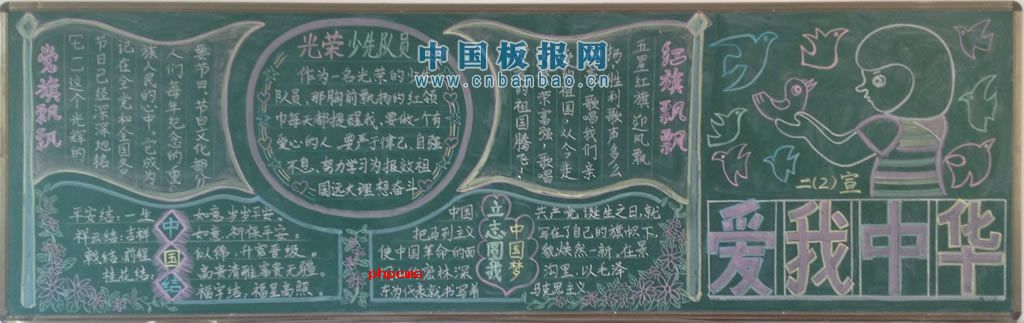 党旗飘飘
七一这个光辉的
节日已经深深地铭
记在全党和全国各
族人民的心中。它成为
人们每年纪念的重
要节日。节日文化部分
光荣少先队员
作为一名光荣的少
队员、那胸前飘扬的红领
巾每天都提醒我、要做一个有
爱心的人、要严于律己、自强
不息、努力学习为报效祖
国远大理想奋斗
中国板报网
www.cnbanbao.cn
红旗飘飘
五星红旗、迎风飘
扬、胜利歌声多么
歌唱我们亲
祖国、从今走
荣富强、歌唱
的祖国腾飞
平安结：一生
祥云结：吉祥
戟结：前程
桂花结：
中国结
如意、岁岁平安。
如意、祈保平安。
似锦、升官晋级。
高贵清雅、富贵无疆。
福字结：福星高照。
中国
把马列主义
使中国革命的面
林深
东为代表就书写着
立志圆我
中国梦
共产党诞生之日、就
写在了自己的旗帜下、
貌焕然一新。在景
沟里、以毛泽
马克思主义
phpcms
二(2)宣
爱我中华